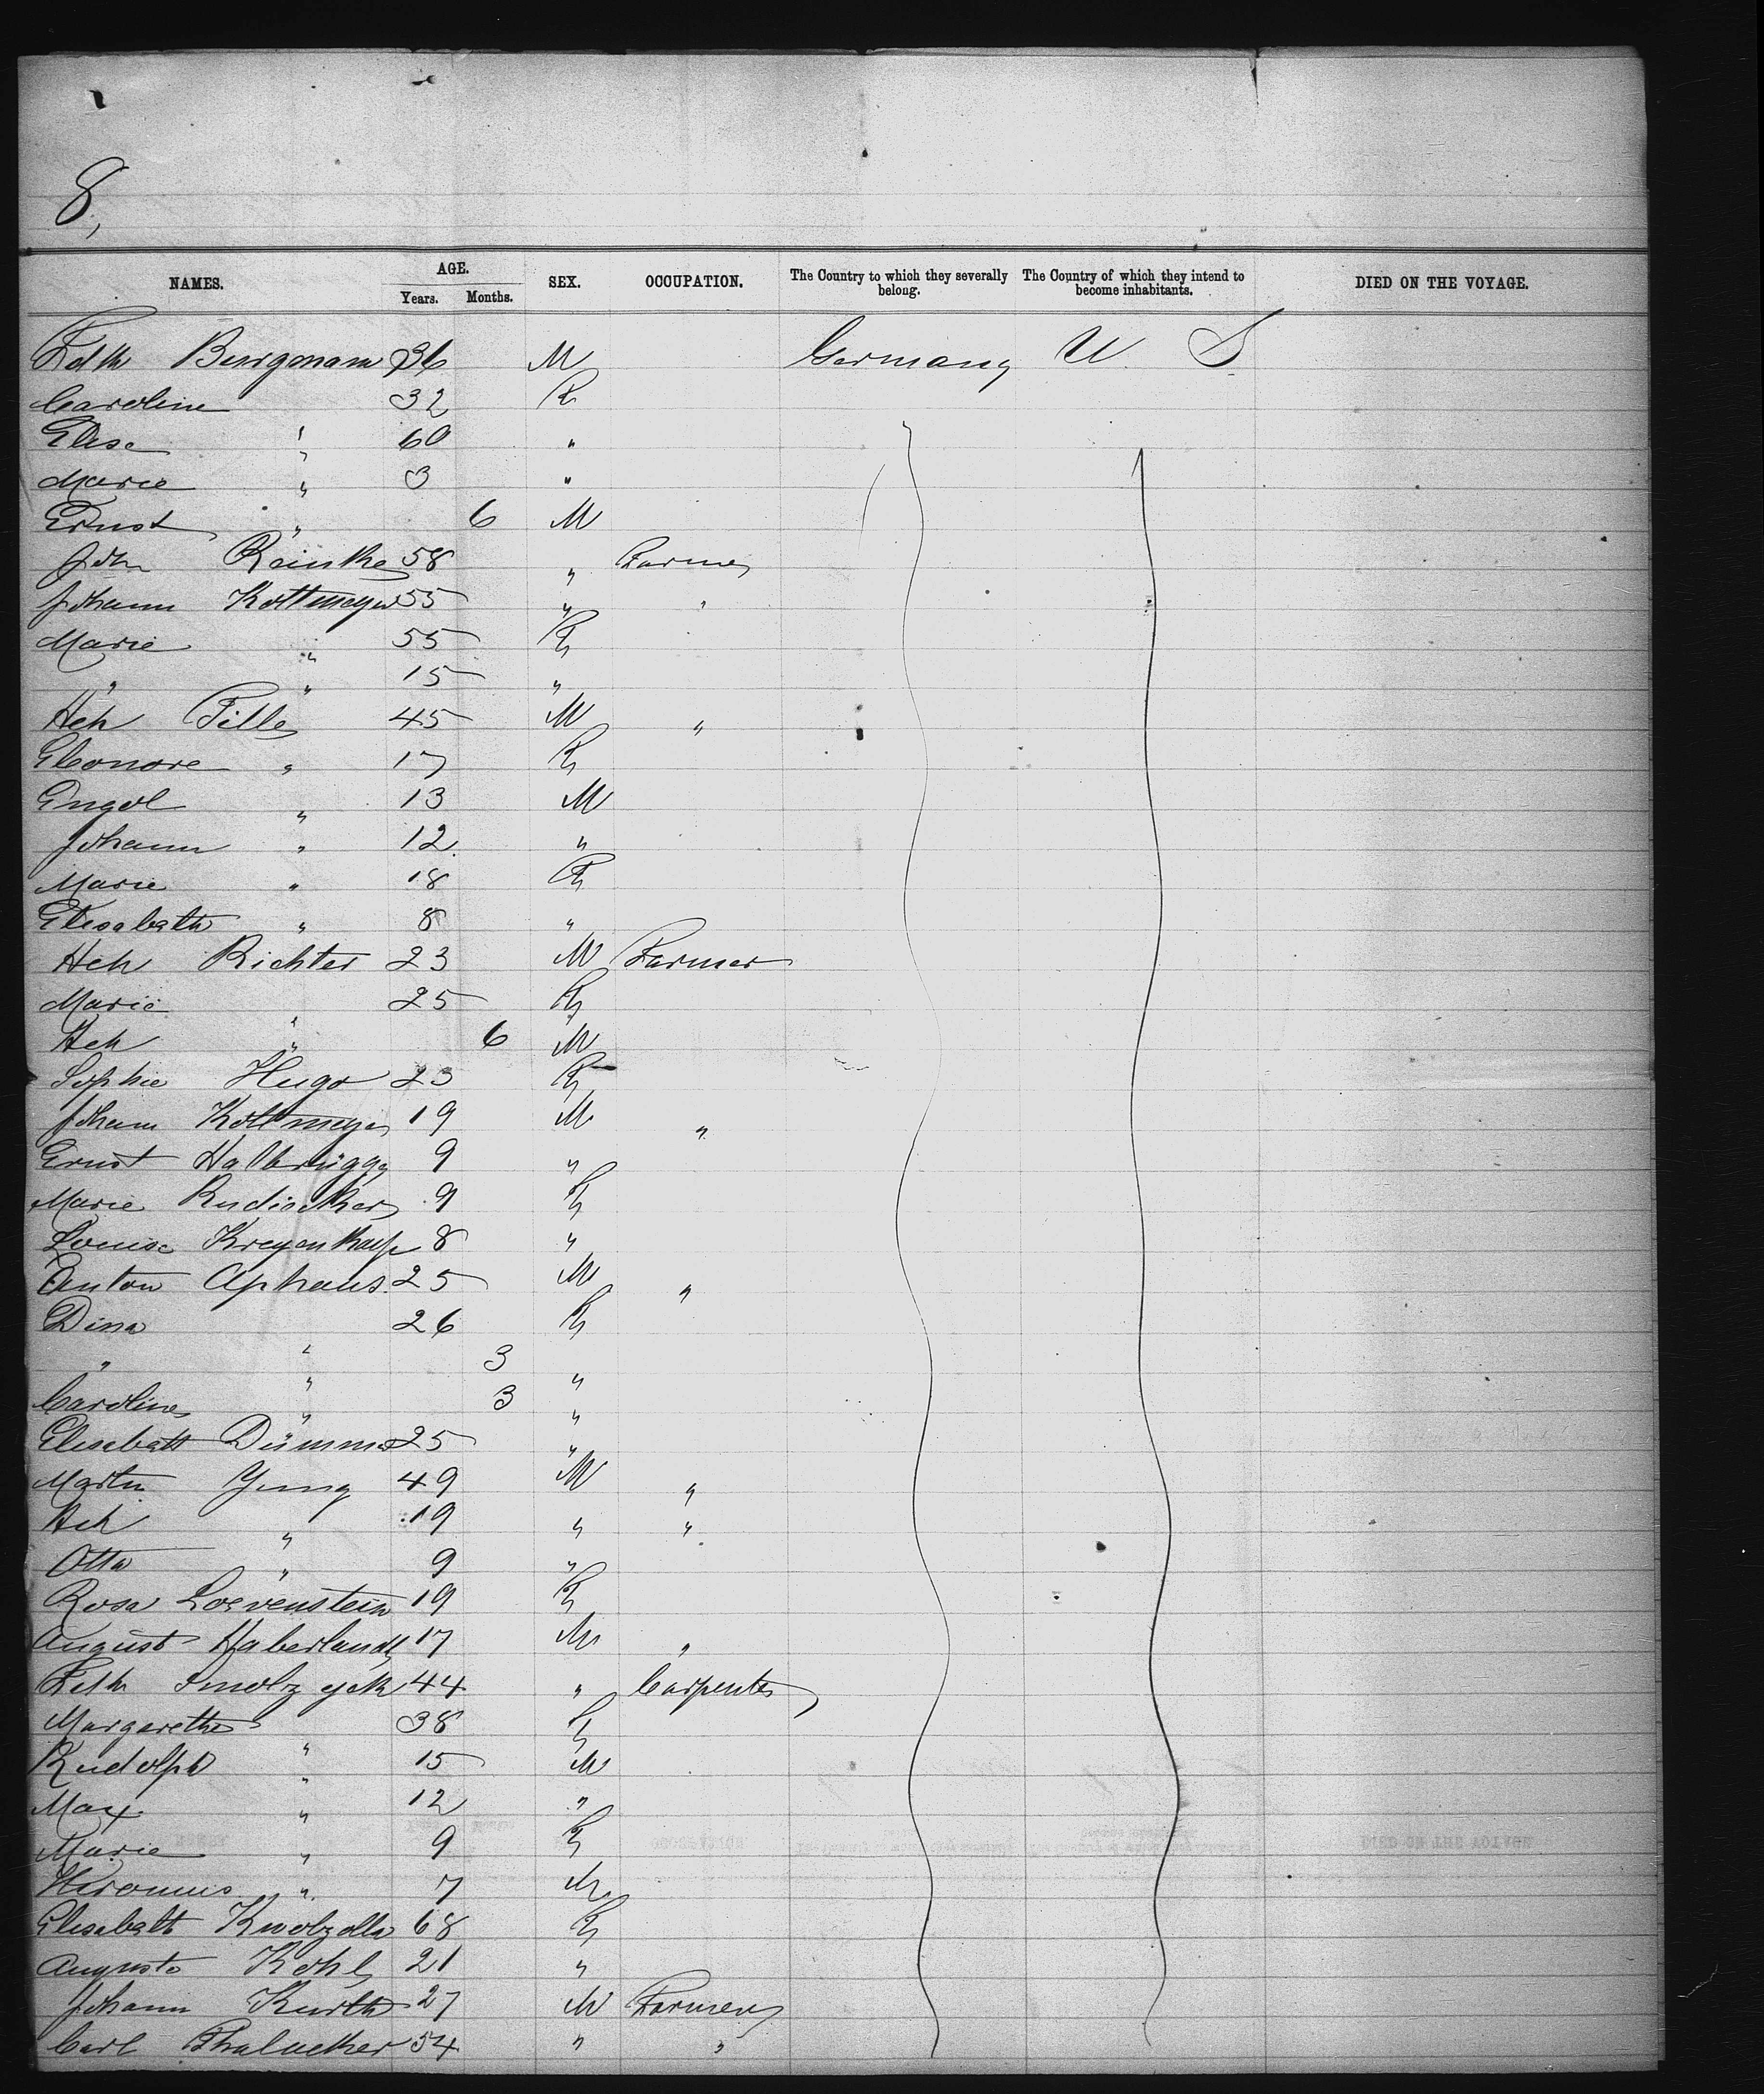 8,
NAMES. AGE. SEX. OCCUPATION. The Country to which they severally belong. The Country of which they intend to become inhabitants. DIED ON THE VOYAGE.
Years. Months.
Fdth Burgmann 36 M Germany U S
Caroline 32 F
Elise " 60 "
Marie " 3 "
Ernst " 6 M
Joh Reinke 58 " Farmer
Johann Kottmeyer 55 " "
Marie " 55 F
" " 15 "
Hch Tille 45 M "
Eleonore " 17 F
Engel " 13 M
Johann " 12 "
Marie " 18 F
Elisabeth " 8 "
Hch Richter 23 M Farmer
Marie " 25 F
Hch " 6 M
Sophie Hugo 23 F
Johann Kottmeyer 19 M "
Ernst Halbrügge 9 "
Marie 9 F
Louise 8 "
Anton Aphaus. 25 M "
Dina 26 F
" " 3 "
Caroline " 3 "
Elisabeth Dümmer 25 "
Martin Jung 49 M "
Hch " 19 " "
Otto " 9 "
Rosa Loevenstein 19 F
August Haberlandt 17 M "
44 " Carpenter
Margarethe " 38 F
Rudolph " 15 M
Max " 12 "
Marie " 9 F
" 7 M
Elisabeth 68 F
Auguste Kohl 21 "
Johann Kurth 27 M Farmer
Carl Thalacker 54 " "